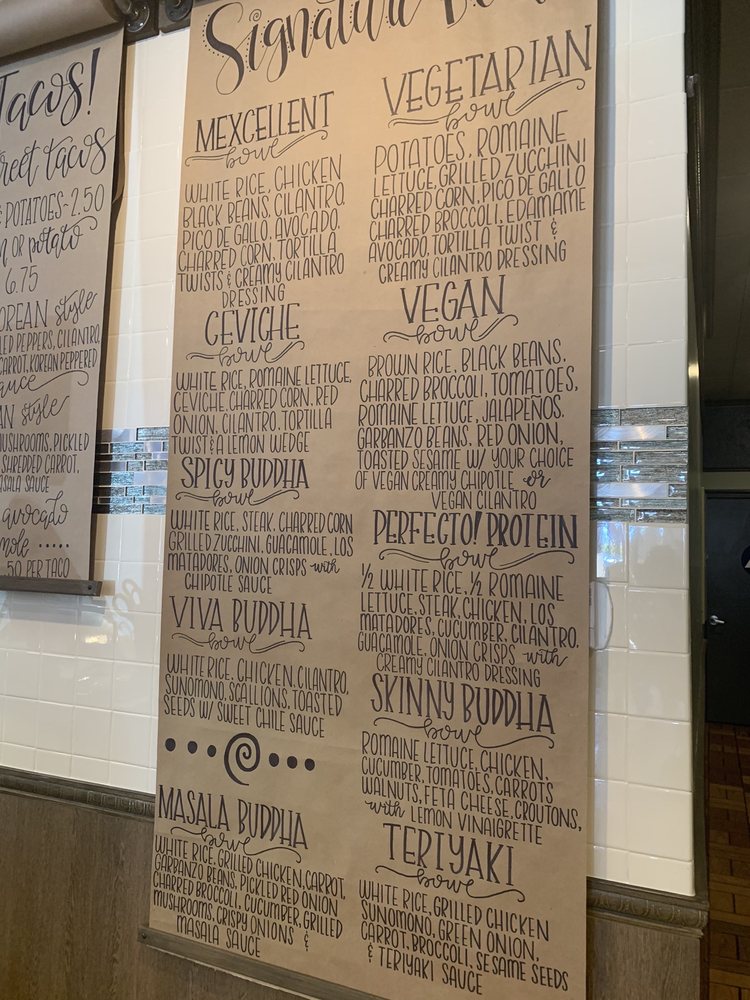 Tacos!
reet tacos
& POTATOES~2.50
OR potato
6.75
OREAN style
LED PEPPERS, CILANTRO,
CARROT, KOREAN PEPPERED
auce
AN style
MUSHROOMS, PICKLED
SHREDDED CARROT,
ASALA SAUCE
avocado
mole .....
.50 PER TACO
Signature
MEXCELLENT
bowl
WHITE RICE, CHICKEN
BLACK BEANS, CILANTRO,
PICO DE GALLO, AVOCADO,
CHARRED CORN, TORTILLA
TWISTS & CREAMY CILANTRO
DRESSING
CEVICHE
bowl
WHITE RICE, ROMAINE LETTUCE,
CEVICHE, CHARRED CORN, RED
ONION, CILANTRO, TORTILLA
TWIST & A LEMON WEDGE
SPICY BUDDHA
bowl
WHITE RICE, STEAK, CHARRED CORN
GRILLED ZUCCHINI, GUACAMOLE, LOS
MATADORES, ONION CRISPS with
CHIPOTLE SAUCE
VIVA BUDDHA
bowl
WHITE RICE, CHICKEN, CILANTRO,
SUNOMONO, SCALLIONS, TOASTED
SEEDS W/ SWEET CHILE SAUCE
MASALA BUDDHA
bowl
WHITE RICE, GRILLED CHICKEN, CARROT,
GARBANZO BEANS, PICKLED RED ONION
CHARRED BROCCOLI, CUCUMBER, GRILLED
MUSHROOMS, CRISPY ONIONS &
MASALA SAUCE
VEGETARIAN
bowl
POTATOES, ROMAINE
LETTUCE, GRILLED ZUCCHINI
CHARRED CORN, PICO DE GALLO
CHARRED BROCCOLI, EDAMAME
AVOCADO, TORTILLA TWIST &
CREAMY CILANTRO DRESSING
VEGAN
bowl
BROWN RICE, BLACK BEANS,
CHARRED BROCCOLI, TOMATOES,
ROMAINE LETTUCE, JALAPEÑOS,
GARBANZO BEANS, RED ONION,
TOASTED SESAME W/ YOUR CHOICE
OF VEGAN CREAMY CHIPOTLE or
VEGAN CILANTRO
PERFECTO! PROTEIN
bowl
½ WHITE RICE, ½ ROMAINE
LETTUCE, STEAK, CHICKEN, LOS
MATADORES, CUCUMBER, CILANTRO,
GUACAMOLE, ONION CRISPS with
CREAMY CILANTRO DRESSING
SKINNY BUDDHA
bowl
ROMAINE LETTUCE, CHICKEN,
CUCUMBER, TOMATOES, CARROTS
WALNUTS, FETA CHEESE, CROUTONS,
with LEMON VINAIGRETTE
TERIYAKI
bowl
WHITE RICE, GRILLED CHICKEN
SUNOMONO, GREEN ONION,
CARROT, BROCCOLI, SESAME SEEDS
& TERIYAKI SAUCE